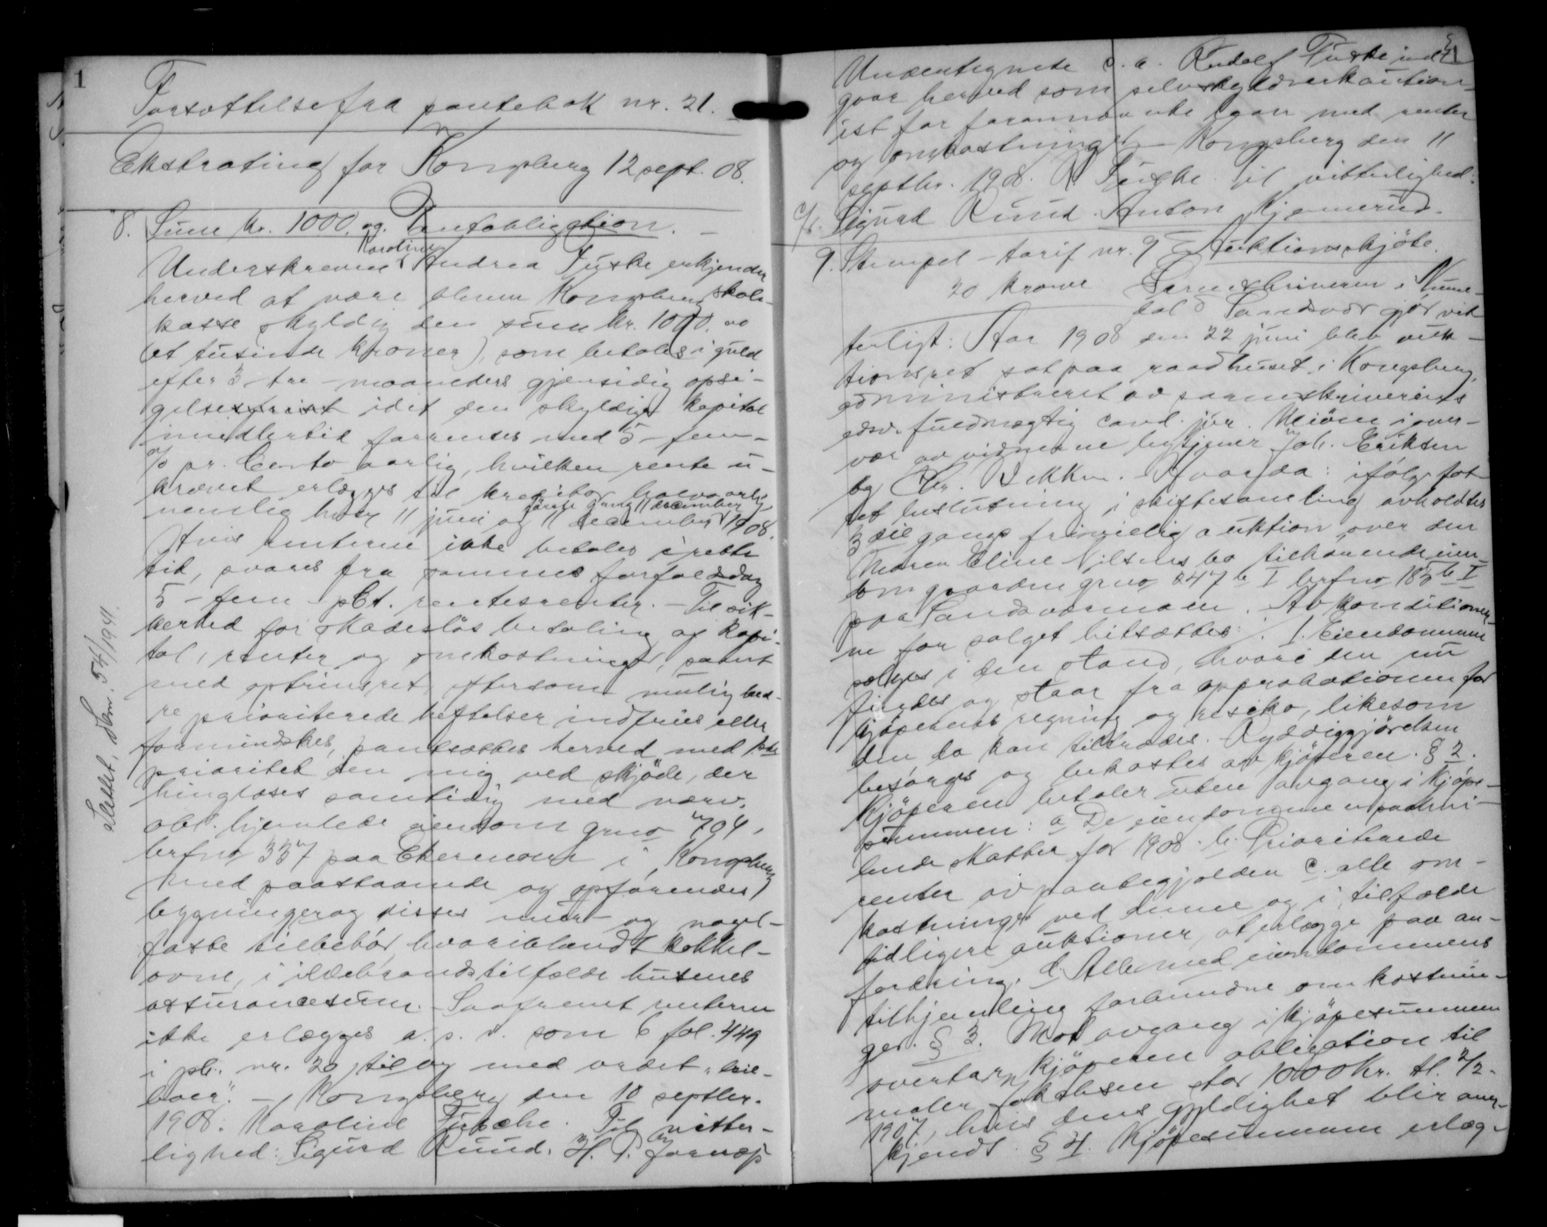 1
Forsættelse fra pantebok nr. 21.
Ekstrating for Kongsberg 12 sept. 08.
8. Sum kr. 1000,00. Pantobligation.
Karoline
Underskrevne Andrea Fuske erkjender
herved at være Kongsberg skole-
kasse skyldig den sum kr. 1000,00
(et tusinde kroner), som betales i guld
efter 3 - tre - maaneders gjensidig opsi-
gelsesfrist idet den skyldige kapital
imidlertid forrentes med 5 - fem -
% pr. Cento aarlig, hvilken rente u-
krævet erlægges til kreditor halvaarlig
første gang 11 december
nemlig hver 11 juni og 11 december 1908.
Hvis renterne ikke betales i rette
tid, svares fra sammes forfaldsdag
5 - fem - pCt. rentesrenter. - Til sik-
kerhed for skadesløs betaling af kapi-
tal, renter og omkostninger, samt
med optrinsret eftersom mulig bed-
re prioriterede heftelser indfries eller
formindskes, pantsættes herved med
prioritet den mig ved skjøde, der
tinglæses samtidig med nærv.
obl. hjemlede eiendom grno 704,
brfno 337 paa i Kongsberg
med paastaaende og opførendes
bygninger og disses mur- og nagel-
faste tilbehør, hvoriblandt kakkel-
ovne, i ildebrandstilfælde husenes
assurancesum. - Saafremt renterne
ikke erlægges o. s. v. som 6 fol. 449
i pb. nr. 20 til og med ordet "
". - Kongsberg den 10 septbr.
1908. Karoline Fuske. Til vitter-
lighed: Sigurd Ruud. H. P.
Slettet, dbnr. 54/1941.
Undertegnede Rudolf Fuske ind-
gaar herved som selvskyldnerkaution-
ist for forannævnte laan med renter
og omkostninger. Kongsberg den 11
septbr. 1908. R. Fuske. Til vitterlighed:
Sigurd Ruud. Anton
9. Stempel - tarif nr. 9 Auktionsskjøte.
20 krone Sorenskriveren i Nume-
dal & Sandsvær gjør vit-
terligt: Aar 1908 den 22 juni blev auk-
tionsret sat paa raadhuset i Kongsberg,
administreret av sorenskriverens
edsv. fuldmægtig cand. jur. i over-
vær av vidnerne Joh. Eriksen
og Chr. Bekken. Hvorda: ifølge fat-
tet beslutning i skiftesamling avholdtes
3die gangs frivillig auktion over den
Maren Eline Nilsens bo tilhørende eien-
domgaarden grno 847 b I brfno 185 b I
paa Sandsværmoen. Av konditioner-
ne for salget hitsættes: § 1. Eiendommene
sælges i den stand, hvori den nu
findes og staar fra approbationen for
kjøperens regning og resiko, likesom
den da kan tiltrædes. Ryddiggjørelsen
besørges og bekostes av kjøperen. § 2.
Kjøperen betaler uten avgang i kjøpe-
summen: a. De eiendommen paahvi-
lende skatter for 1908. b. Prioriterede
renter av pantegjælden c. alle om-
kostninger ved denne og i tilfælde
tidligere auktioner, at erlægge paa an-
fordring. d. Alle med eiendommens
tilhjemling forbundne omkostnin-
ger. § 3. Mot avgang i kjøpesummen
overtar kjøperen obligation til
maler Jakobsen stor 1000 kr. tl. 2/2-
1907, hvis dens gyldighet blir aner-
kjendt. § 4. Kjøpesummen erlæg-